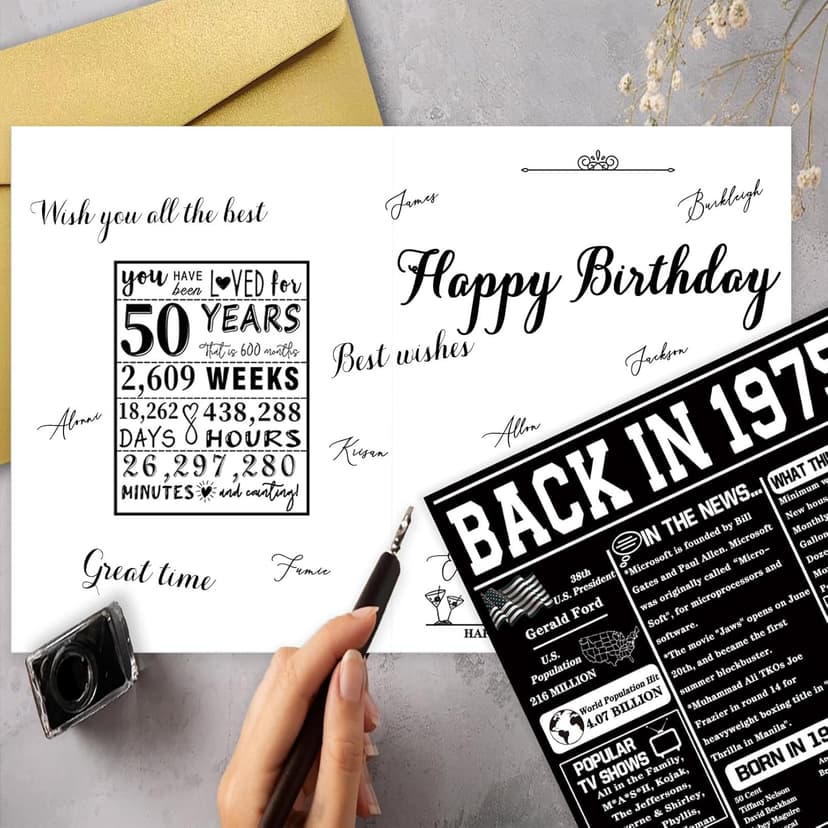 Wish you all the best
James
Burkleigh
Happy Birthday
you HAVE been LOVED for
50 YEARS
That is 600 months
2,609 WEEKS
18,262 DAYS
438,288 HOURS
26,297,280
MINUTES and counting!
Best wishes
Jackson
Alonni
Allon
Great time
BACK IN 1975
IN THE NEWS...
*Microsoft is founded by Bill
Gates and Paul Allen. Microsoft
was originally called "Micro-
Soft", for microprocessors and
software.
*The movie "Jaws" opens on June
20th, and became the first
summer blockbuster.
*Muhammad Ali TKOs Joe
Frazier in round 14 for
heavyweight boxing title in
Thrilla in Manila".
38th
U.S. President
Gerald Ford
U.S.
Population
216 MILLION
World Population Hit
4.07 BILLION
POPULAR
TV SHOWS
All in the Family,
M*A*S*H, Kojak,
The Jeffersons,
& Shirley,
Phyllis,
BORN IN
50 Cent
Tiffany Nelson
David Beckham
Maguire
WHAT
Minimum
New
Monthly